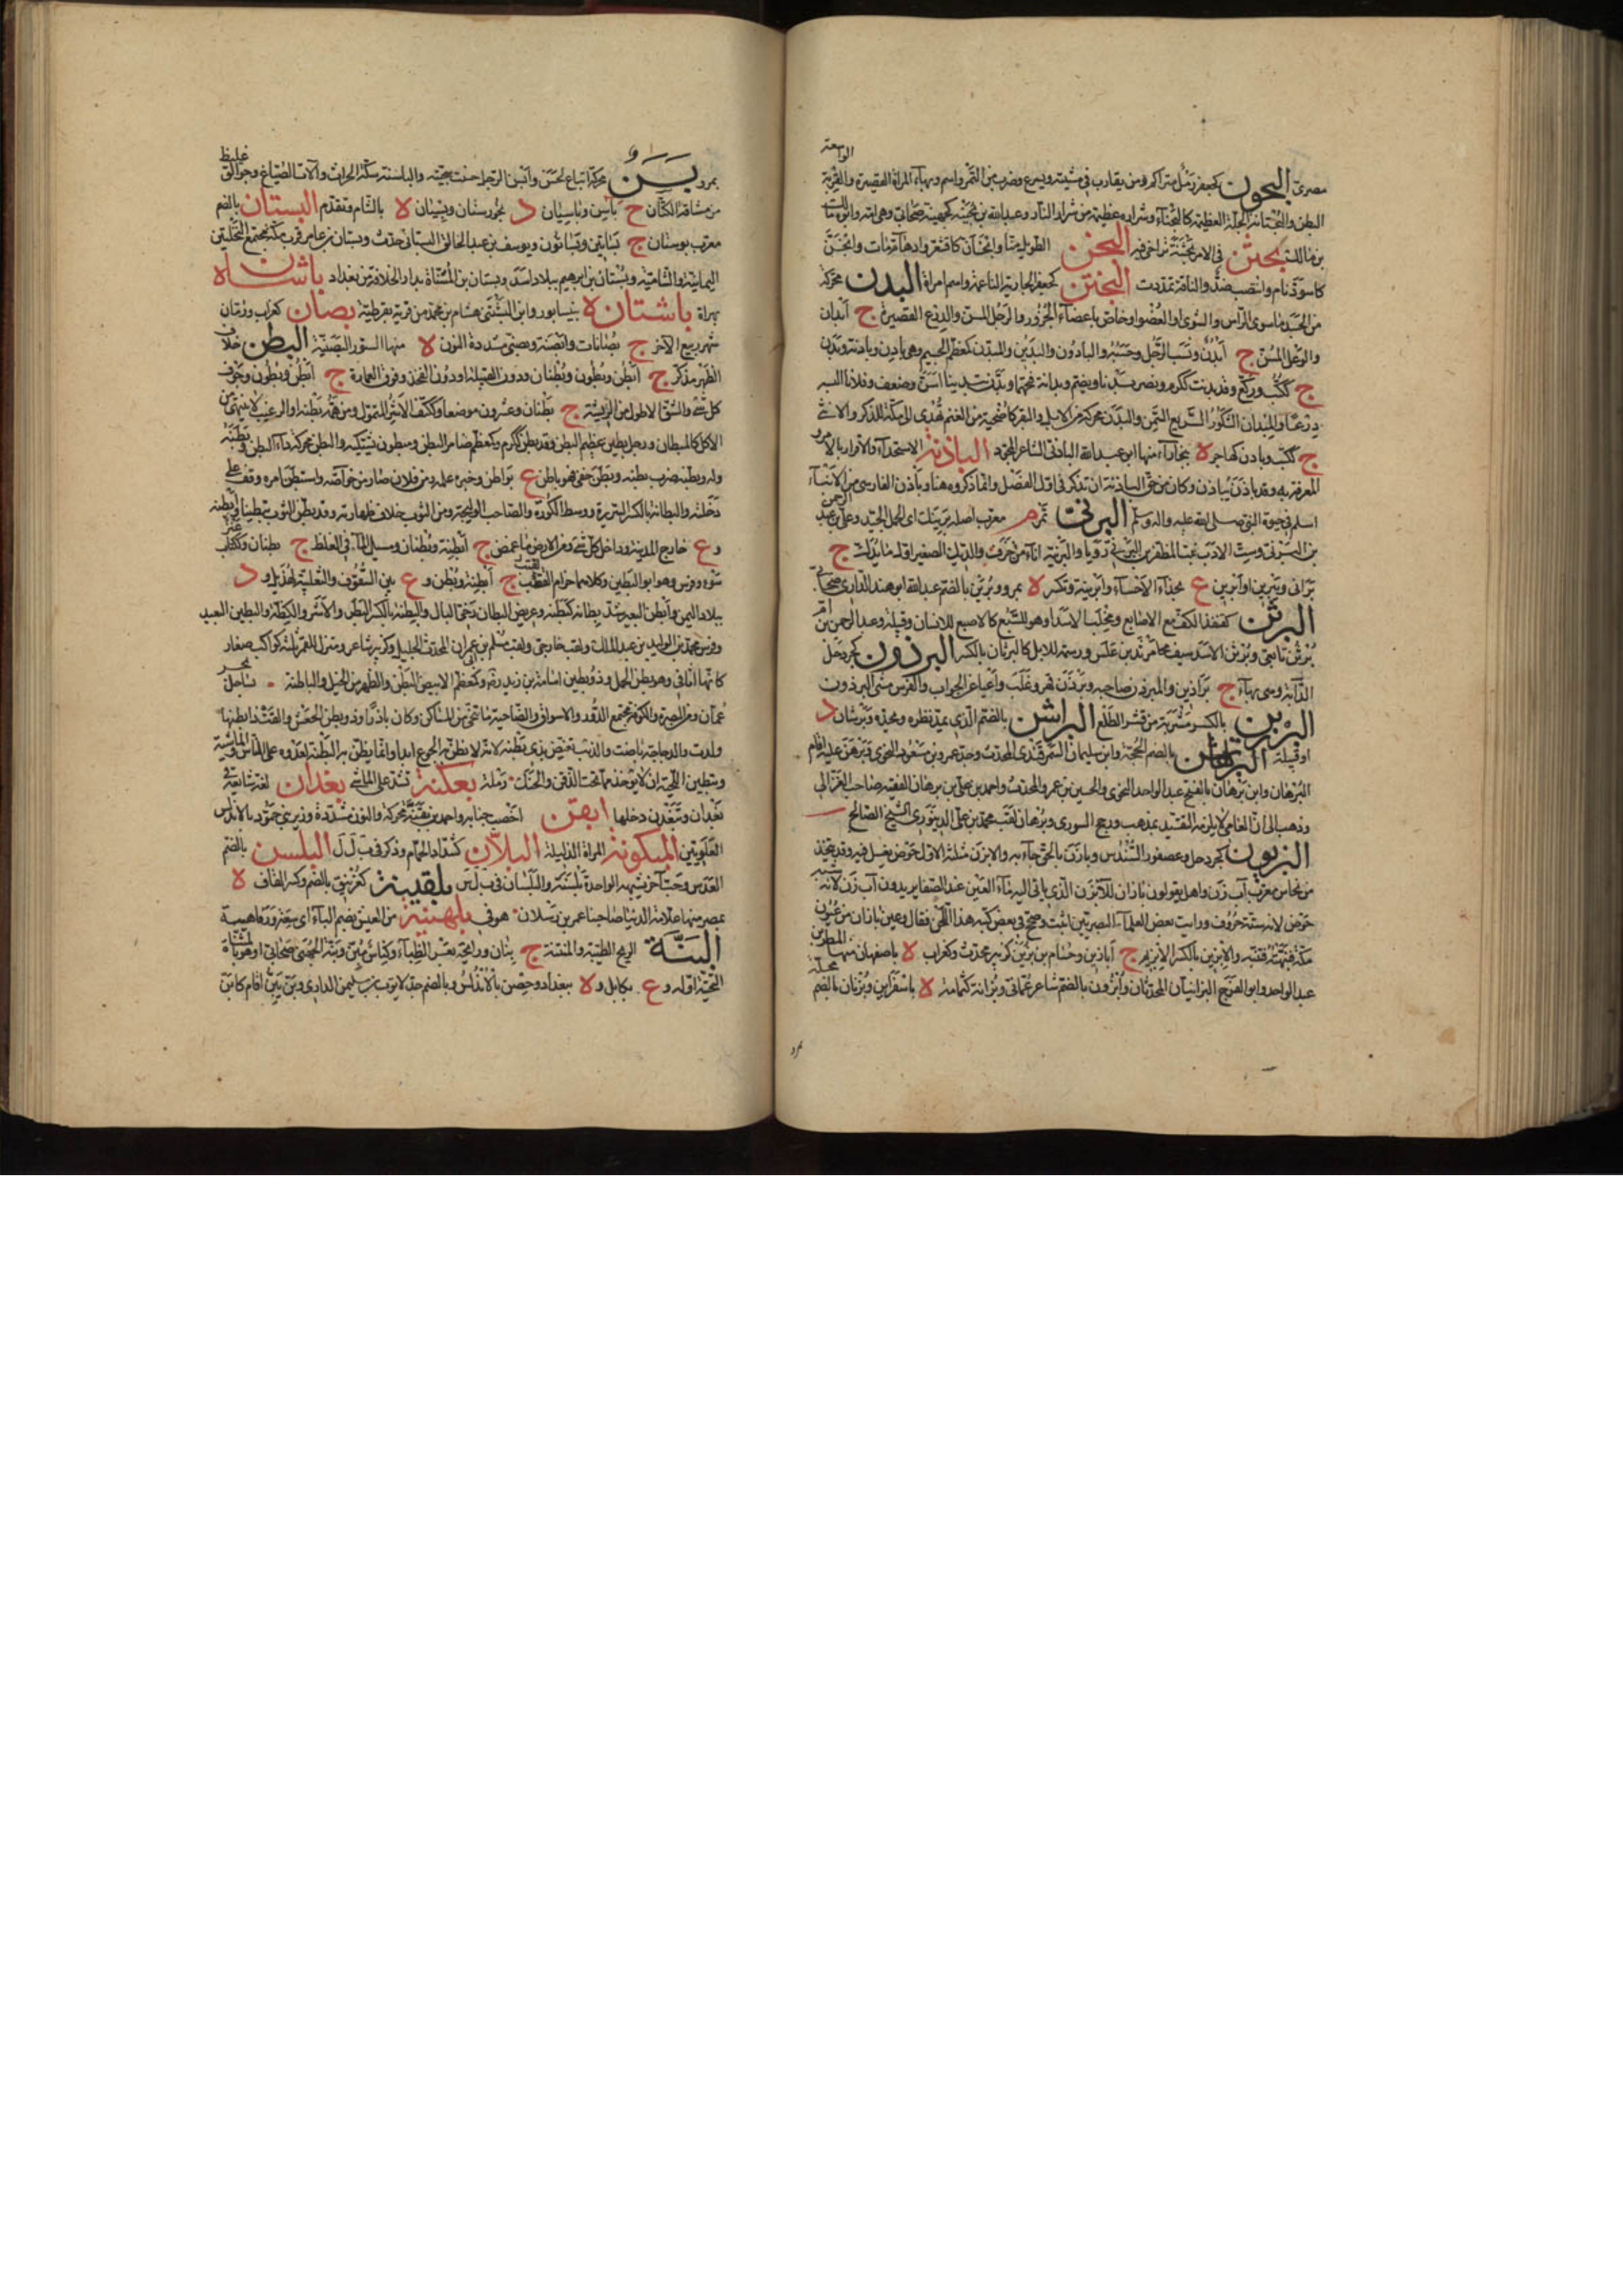 مصرى البحون كجعفر رمل متراكم ومن يقارب فى مشيته ويسرع وضرب من التمر واسم وبهاء المرأة القصيرة والقربة الواسعة
البطن والبحنانة الجلة العظيمة كالبحناء وشرارة عظيمة من شرار النار وعبدالله بن بحينة كجهينة صحابى وهى امه
بن مالك بحثن فى الامر بحثنة تراخى فيه البخن الطويل منا وابخأن كاقشعر وادهأم مات وابخن
كاسود نام وانتصب ضد والناقة تمددت البخدن كجعفر الجارية الناعمة واسم امراة البدن محركة
من الجسد ما سوى الرأس والشوى او العضو او خاص باعضاء الجزور والرجل المسن والدرع القصيرة ج ابدان
والوعل المسن ج ابدن ونسب الرجل وحسبه والبادون والبدين والمبدن كمعظم الجسيم وهى بادن وبادنة وبدين
ج ككتب وركع وقد بدنت ككرم ونصر بدنا ويضم وبدانة بفتحهما وبدن تبدينا اسن وضعف وفلانا البسه
درعا والمبدان الشكور السريع السمن والبدنة محركة من الابل والبقر كالاضحية من الغنم تهدى الى مكة للذكر والانثى
ج ككتب وبادن كهاجر ه ببخاراء منها ابو عبدالله البادنى الشاعر المجود الباذنة الاستخذاء والاقرار بالامر و
المعرفة به وقد باذن يباذن وكان من حق الباذنة ان تذكر فى اول الفصل وانما ذكروه هنا وباذن الفارسى من الابناء
اسلم فى حيوة النبى صلى الله عليه واله وسلم البرنى تمر م معرب اصله برنيك اى الحمل الجيد وعلى بن عبد الرحمن
بن البرنى وست الادب بنت المظفر بن البرنى رويا والبرنية اناء من خزف والديك الصغير اول ما يدرك ج
برانى ويبرين او ابرين ع بحذاء الاحساء وابرينة وتكسر ه بمرو وبرين بالضم عبدالله ابو هند الدارى صحابى
البرثن كقنفذ الكف مع الاصابع ومخلب الاسد او هو للسبع كالاصبع للانسان وقبيلة وعبد الرحمن بن ام
برثن تابعى وبرثن الاسد سيف مرثد بن علس وسمة للابل كالبرثان بالكسر البرذون كجردحل
الدابة وهى بهاء ج براذين والمبرذن صاحبه وبرذن قهر وغلب واعيا عن الجواب والفرس مشى البرذون
البرزين بالكسر مشربة من قشر الطلع البراشن بالضم الذى يمد نظره ويحده وبرشان د
او قبيلة البرهان بالضم الحجة وابن سليمان السمرقندى المحدث وجد عمرو بن مسعود النحوى وبرهن عليه اقام
البرهان وابن برهان بالفتح عبد الواحد النحوى والحسين بن عمر المحدث واحمد بن على بن برهان الفقيه صاحب الغزالى
وذهب الى ان العامى لا يلزمه التقييد بمذهب ورجح النووى وبرهان لقب محمد بن على الدينورى الشيخ الصالح
البزيون كجردحل وعصفور السندس وبازن بالحق جاء به والابزن مثلثة الاول حوض يغتسل فيه وقد يتخذ
من نحاس معرب آب زن واهل مكة يقولون بازان للابزن الذى ياتى اليه ماء العين عند الصفا يريدون آب زن لانه شبه
حوض لانه ستة حروف ورايت بعض العلماء البصريين اثبت وصحح فى بعض كتبه هذا اللحن فقال وعين بازان من عيون
مكة فنبهته فتنبه والابزين بالكسر الابزيم ج ابازين وحشام بن بزين كزبير محدث وكغراب ه باصفهان منها المطهر بن
عبدالواحد وابو الفرج البزانيان المحدثان وابزون بالضم شاعر عمانى وبزانة كثمامة ه باسفراين وبزنان بالضم محلة
بمرو
بمرو بسن محركة اتباع لحسن وابسن الرجل حسنت سحنته والباسنة سكة الحراث وآلات الصناع وجوالق غليظ
من مشاقة الكتان ج باسن وباسيان د بخوزستان وبيسان ه بالشام وتقدم البستان بالضم
معرب بوستان ج بساتين وبساتون ويوسف بن عبد الخالق البستانى حدث وبستان ابن عامر قرب مكة مجتمع النخلتين
اليمانية والشامية وبستان ابراهيم ببلاد اسد وبستان المسناة بدار الخلافة من بغداد باشان ه
بهراة باشتان ه بنيسابور وابن البشتنى هشام بن محمد من قرية بقرطبة بصان كغراب ورمان
شهر ربيع الآخر ج بصانات وابصنة وبصنى مشددة النون ه منها الستور البصنية البطن خلاف
الظهر مذكر ج ابطن وبطون وبطنان ودون القبيلة او دون الفخذ وفوق العمارة ج ابطن وبطون وجوف
كل شئ والشق الاطول من الريشة ج بطنان وعشرون موضعا وككتف الاشر المتمول ومن همه بطنه او الرغيب لا ينتهى من
الاكل كالمبطان ورجل بطين عظيم البطن وقد بطن ككرم وكمعظم ضامر البطن ومبطون يشتكيه والبطن محركة داء البطن وبطنه
وله وبطنه ضرب بطنه وبطن خفى فهو باطن ج بواطن وخبره علمه ومن فلان صار من خواصه واستبطن امره وقف على
دخلته والبطانة بالكسر السريرة ووسط الكورة والصاحب الوليجة ومن الثوب خلاف ظهارته وقد بطن الثوب تبطينا وابطنه
وع خارج المدينة وداخل كل شئ ومن الارض ما غمض ج ابطنة وبطنان ومسيل الماء فى الغلظ ج بطنان وككتاب
سوء وفرس وهو ابو البطين وكلاهما حزام القتب ج ابطنة وبطن وع بين الشقوق والثعلبية لهذيل و د
ببلاد اليمن وابطن البعير شد بطانه كبطنه وعريض البطان رخى البال والبطنة بالكسر البطر والاشر والكظة والبطين البعيد
وفرس محمد بن الوليد بن عبد الملك ولقب خارجى ولقب مسلم بن عمران المحدث الجليل وكزبير شاعر ومنزل للقمر ثلثة كواكب صغار
كانها اثافى وهو بطن الحمل وذو بطين اسامة بن زيد وكمعظم الابيض البطن والظهر من الخيل والباطنة ساحل بحر
عمان ومن البصرة والكوفة مجتمع الدور والاسواق والضاحية ما تنحى من المساكن وكان بارزا وذو بطن الجعس والقت ذا بطنها
ولدت والدجاجة باضت والذئب يغبط بذى بطنه لانه لا يظن به الجوع ابدا وانما يظن به البطنة لعدوه على الناس والماشية
وتبطين اللحية ان لا يؤخذ مما تحت الذقن والحنك رملة بعكنة تشتد على الماشى بغدان لغة شائعة فى
بغداد وتبغدن دخلها ابقن اخصب جنابه واحمد بن بقنة محركة والنون مشددة وزير بنى حمود بالاندلس
العلويين المبكونة المراة الذليلة البلان كشداد الحمام وذكر فى ب ل ل البلسن بالضم
العدس وحب آخر يشبهه الواحدة بلسنة والبلسان فى ب ل س بلقينة كغرنيق بالضم وكسر القاف ه
بمصر منها علامة الدنيا صاحبنا عمر بن رسلان هو فى بلهنية من العيش بضم الباء اى سعة ورفاهية
البنة الريح الطيبة والمنتنة ج بنان ورائحة بعر الظباء وكناس مبن وبنة الجهنى صحابى او هو بالمثناة
التحتية اوله وع بكابل و ه ببغداد وحصن بالاندلس وبالضم جد لايوب بن سليمن الدارى وبن يبن اقام كابن